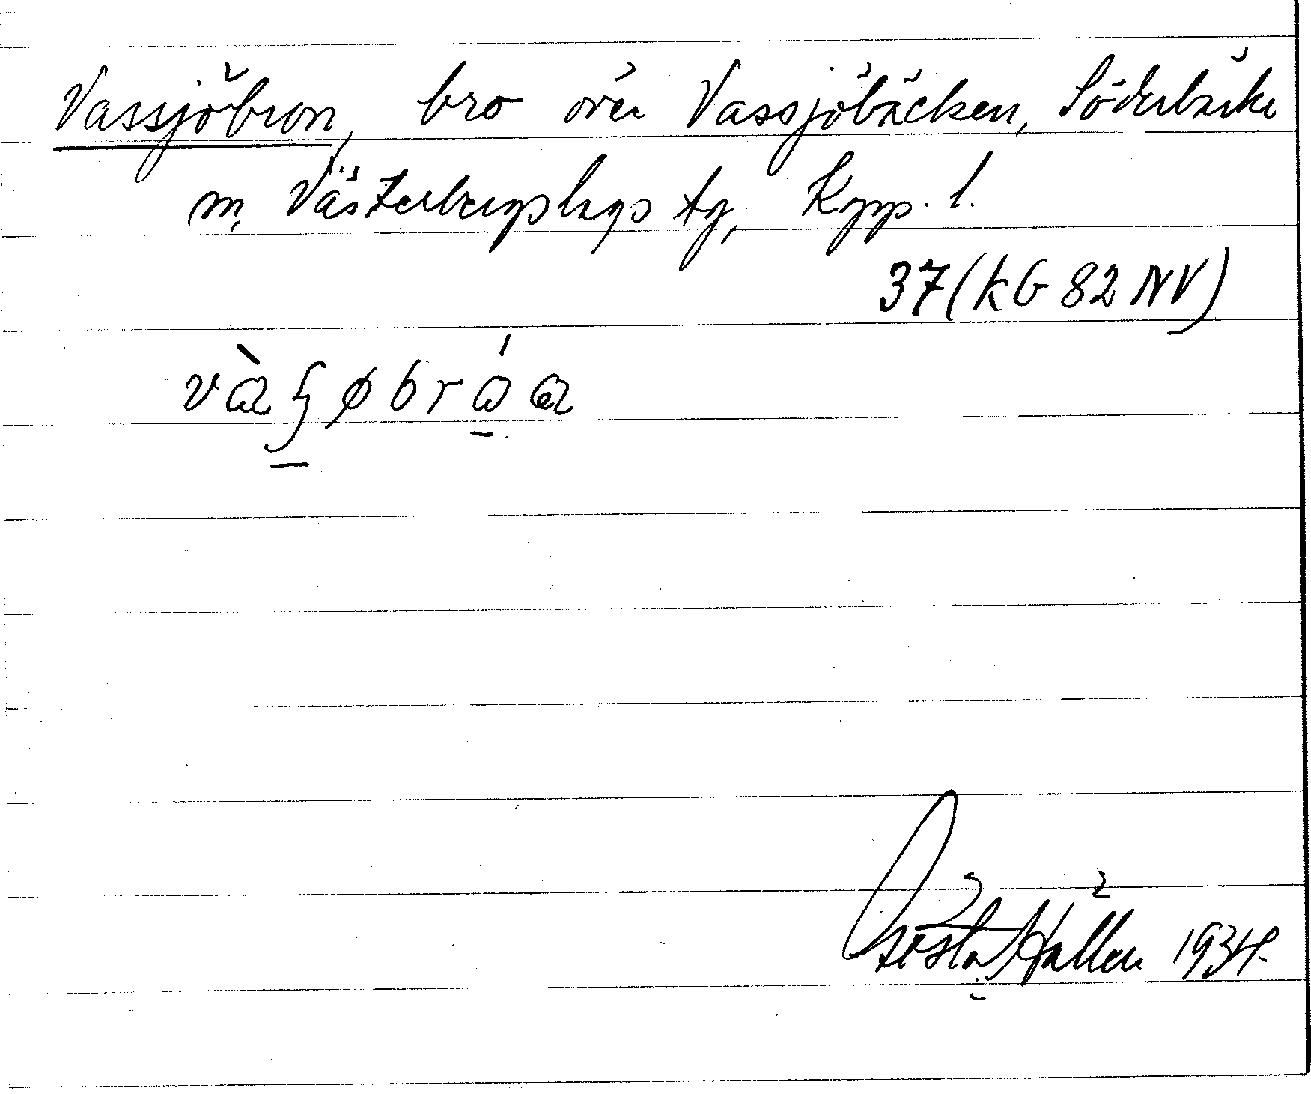 Vassjöbron, bro över Vassjöbäcken, Söderbärke
m, Västerbergslags tg, Kopp. l.
37 (kG 82 NV)
Gösta Hallén 1934.